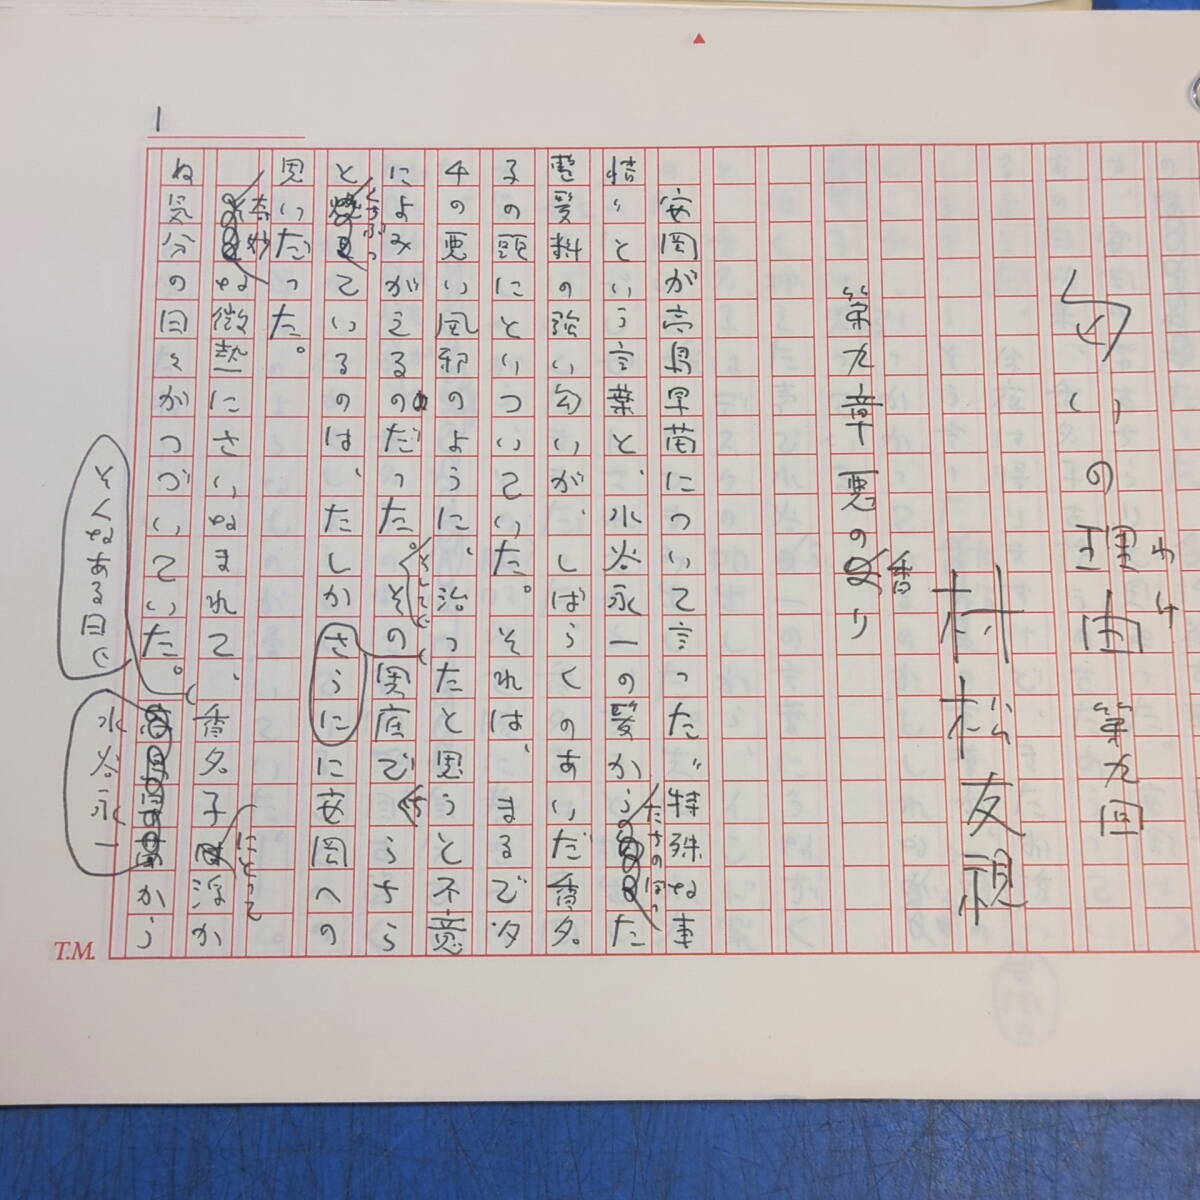 1
匂いの理由 第九回
わけ
村松友視
第九章 悪の香り
安岡が高島早苗について言った〝特殊な事
情〟という言葉と、水谷永一の髪からたちのぼった
整髪料の強い匂いが、しばらくのあいだ香夕
子の頭にとりついていた。それは、まるでタ
チの悪い風邪のように、治ったと思うと不意
によみがえるのだった。そして、その奥底でちらちら
とくすぶっているのは、たしかに安岡への
思いだった。
奇妙な微熱にさいなまれて、香夕子にとって浮か
ぬ気分の日々がつづいていた。
そんなある日に
水谷永一から
さらに
T.M.